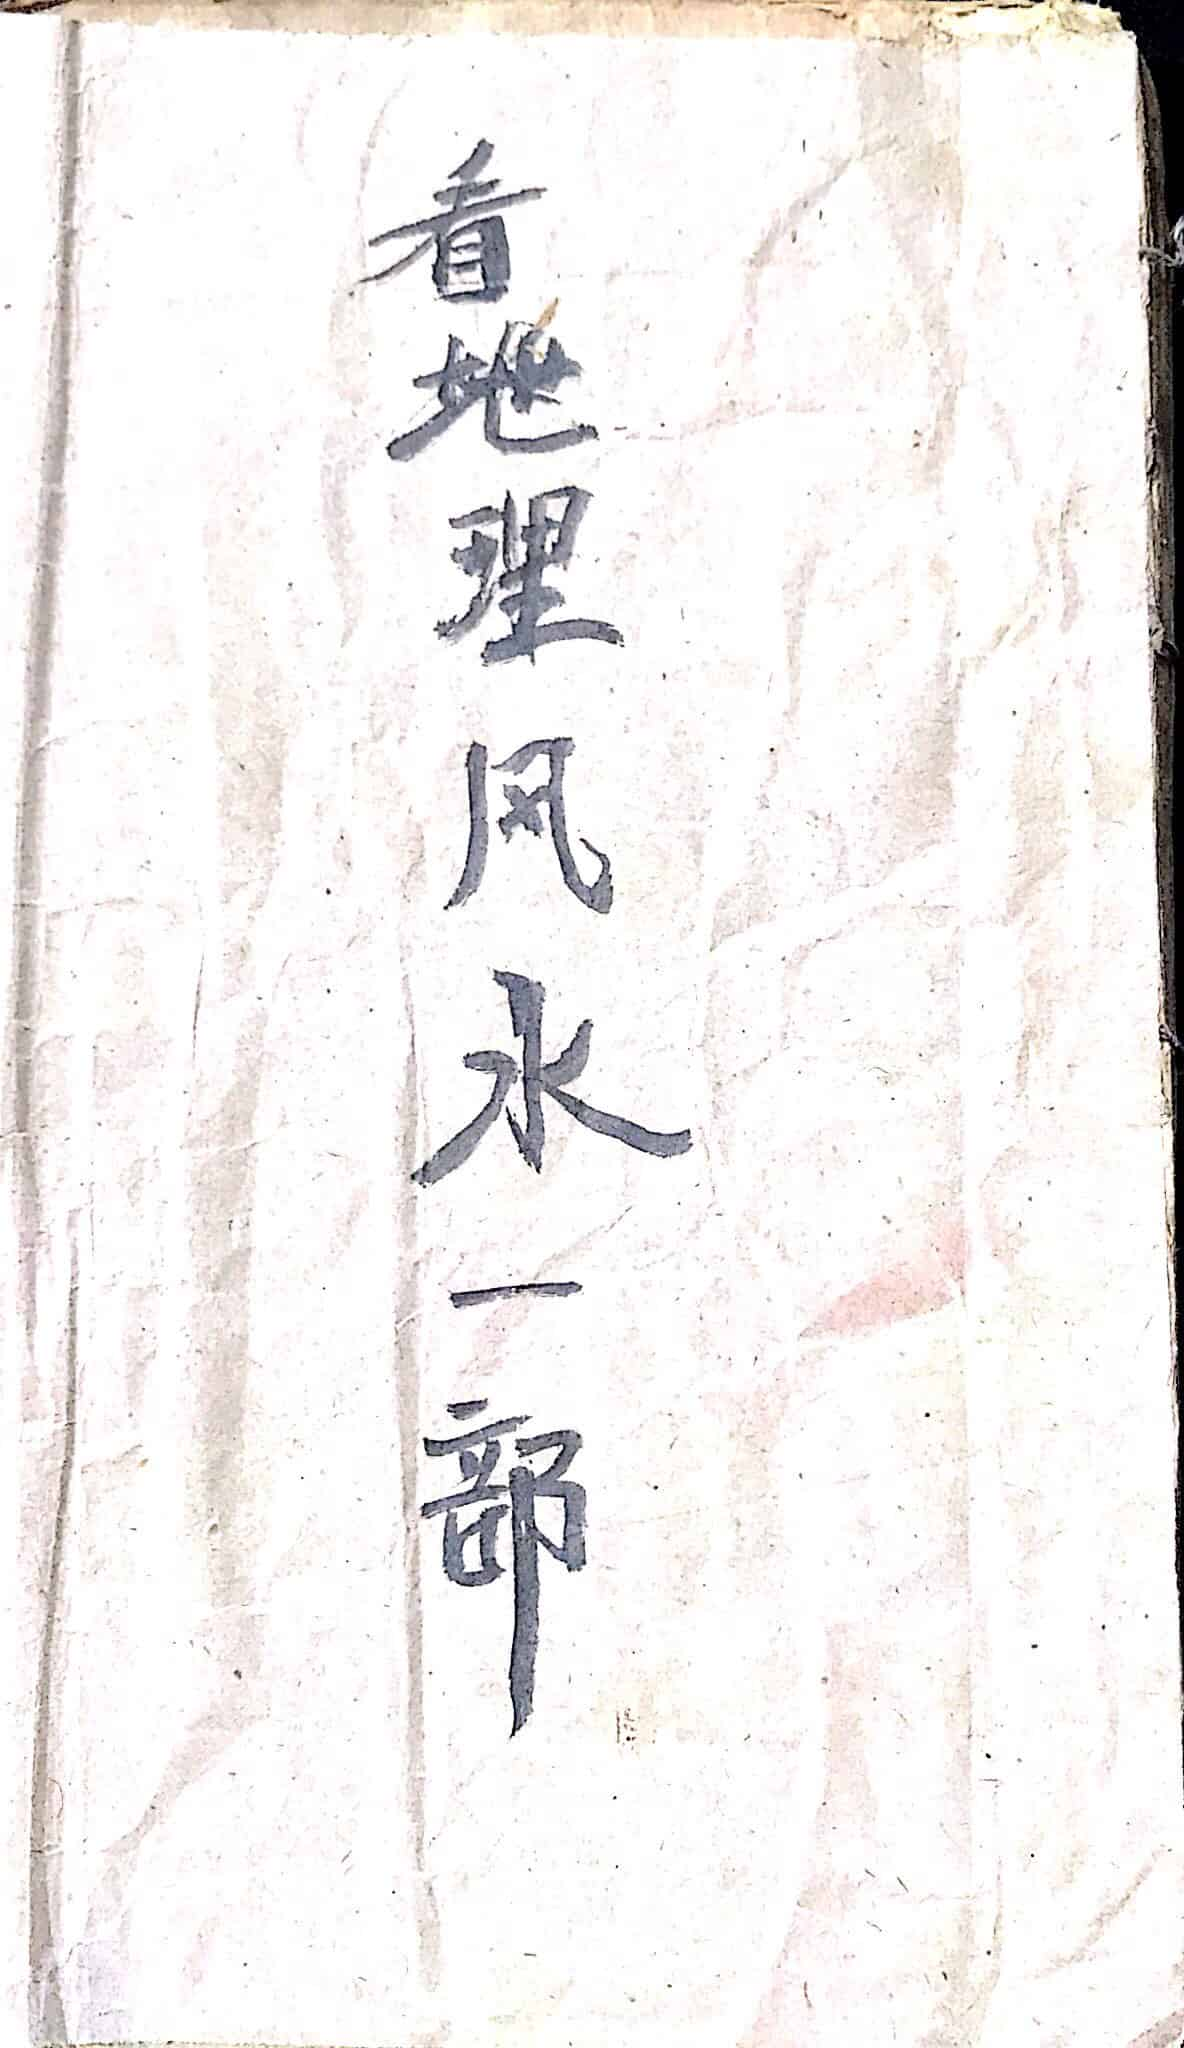 看地理风水一部